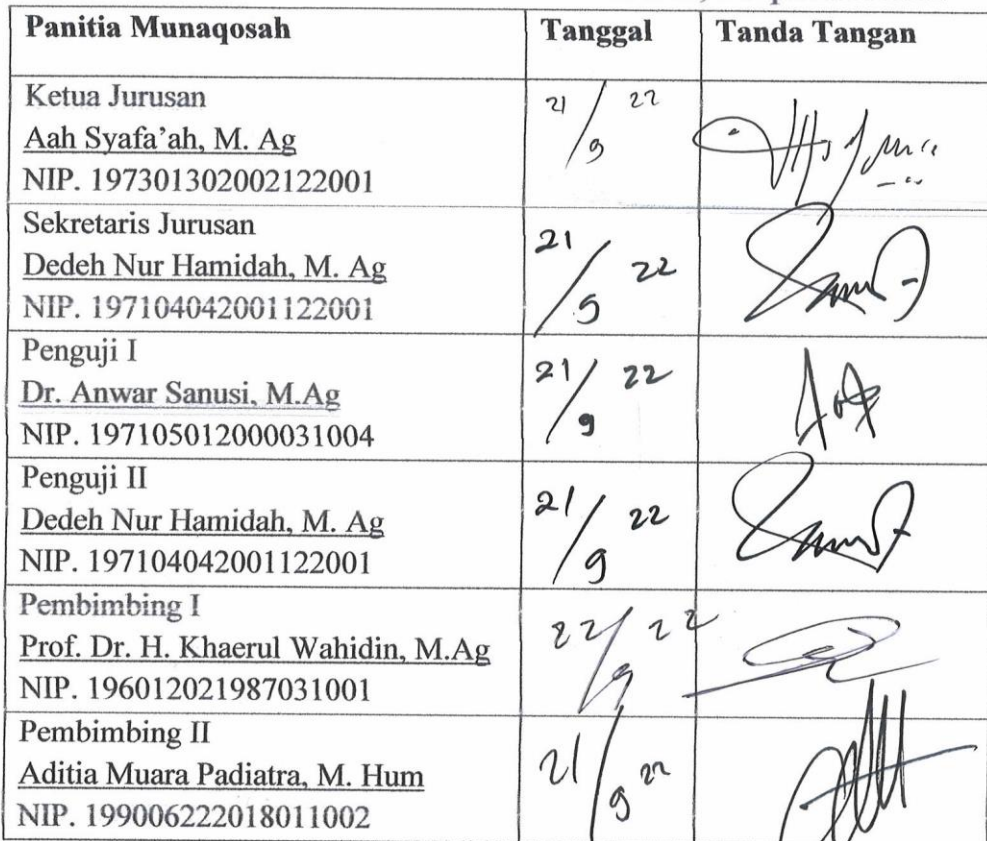 Panitia Munaqosah Tanggal Tanda Tangan
Ketua Jurusan
Aah Syafa'ah, M. Ag
NIP. 197301302002122001
21/9 22
Sekretaris Jurusan
Dedeh Nur Hamidah, M. Ag
NIP. 197104042001122001
21/9 22
Penguji I
Dr. Anwar Sanusi, M.Ag
NIP. 197105012000031004
21/9 22
Penguji II
Dedeh Nur Hamidah, M. Ag
NIP. 197104042001122001
21/9 22
Pembimbing I
Prof. Dr. H. Khaerul Wahidin, M.Ag
NIP. 196012021987031001
22/9 22
Pembimbing II
Aditia Muara Padiatra, M. Hum
NIP. 199006222018011002
21/9 22